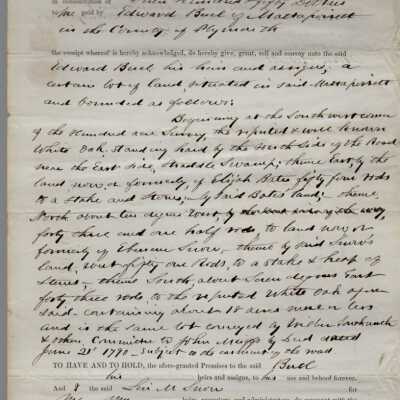 in consideration of Three Hundred & fifty Dollars
to me paid by Edward Buel of Mattapoisett
in the County of Plymouth
the receipt whereof is hereby acknowledged, do hereby give, grant, sell and convey unto the said
Edward Buel his heirs and assigns, a
certain lot of land situated in said Mattapoisett
and bounded as follows:
Beginning at the South west corner
of the Hundred acre Survey, the reputed & well known
White Oak, standing hard by the North Side of the Road
near the East side, Swamp; thence East, by the
land now, or formerly, of Elijah Bates fifty four rods
to a stake and stones, by said Bates' land; thence
North about ten degrees West, by
forty three and one half rods, to land now or
formerly of Snow, thence by said Snow's
land, West fifty one Rods, to a stake & heap of
stones, thence South, about Seven degrees East
forty three rods, to the reputed White Oak afore
said - containing about 18 acres more or less
and is the same lot conveyed by
& other Committee to John by deed dated
June 21st 1790 - subject to the easement of the road
TO HAVE AND TO HOLD, the afore-granted Premises to the said Buel
his heirs and assigns, to his use and behoof forever.
And I the said M. Snow , for
me my heirs, executors, and administrators, do covenant with the